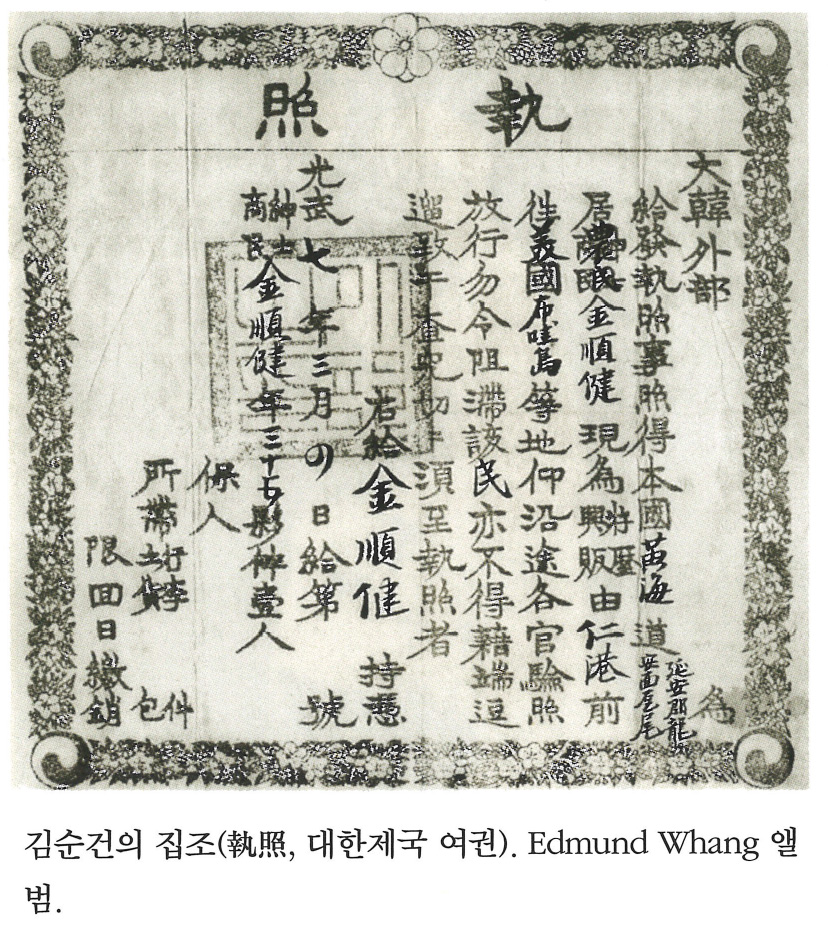 執照
大韓外部 為
給發執照事照得本國黃海道延安郡龍
居農民金順健現為遊歷興販由仁港前
徃美國布哇島等地仰沿途各官驗照
放行勿令阻滯該民亦不得藉端逗
遛致干查究切切須至執照者
右給金順健 持憑
光武七年三月 日給第 號
紳士商民金順健年三十七 伴壹人
保人
所帶行李土貨 件包
限回日繳銷
김순건의 집조(執照, 대한제국 여권). Edmund Whang 앨
범.